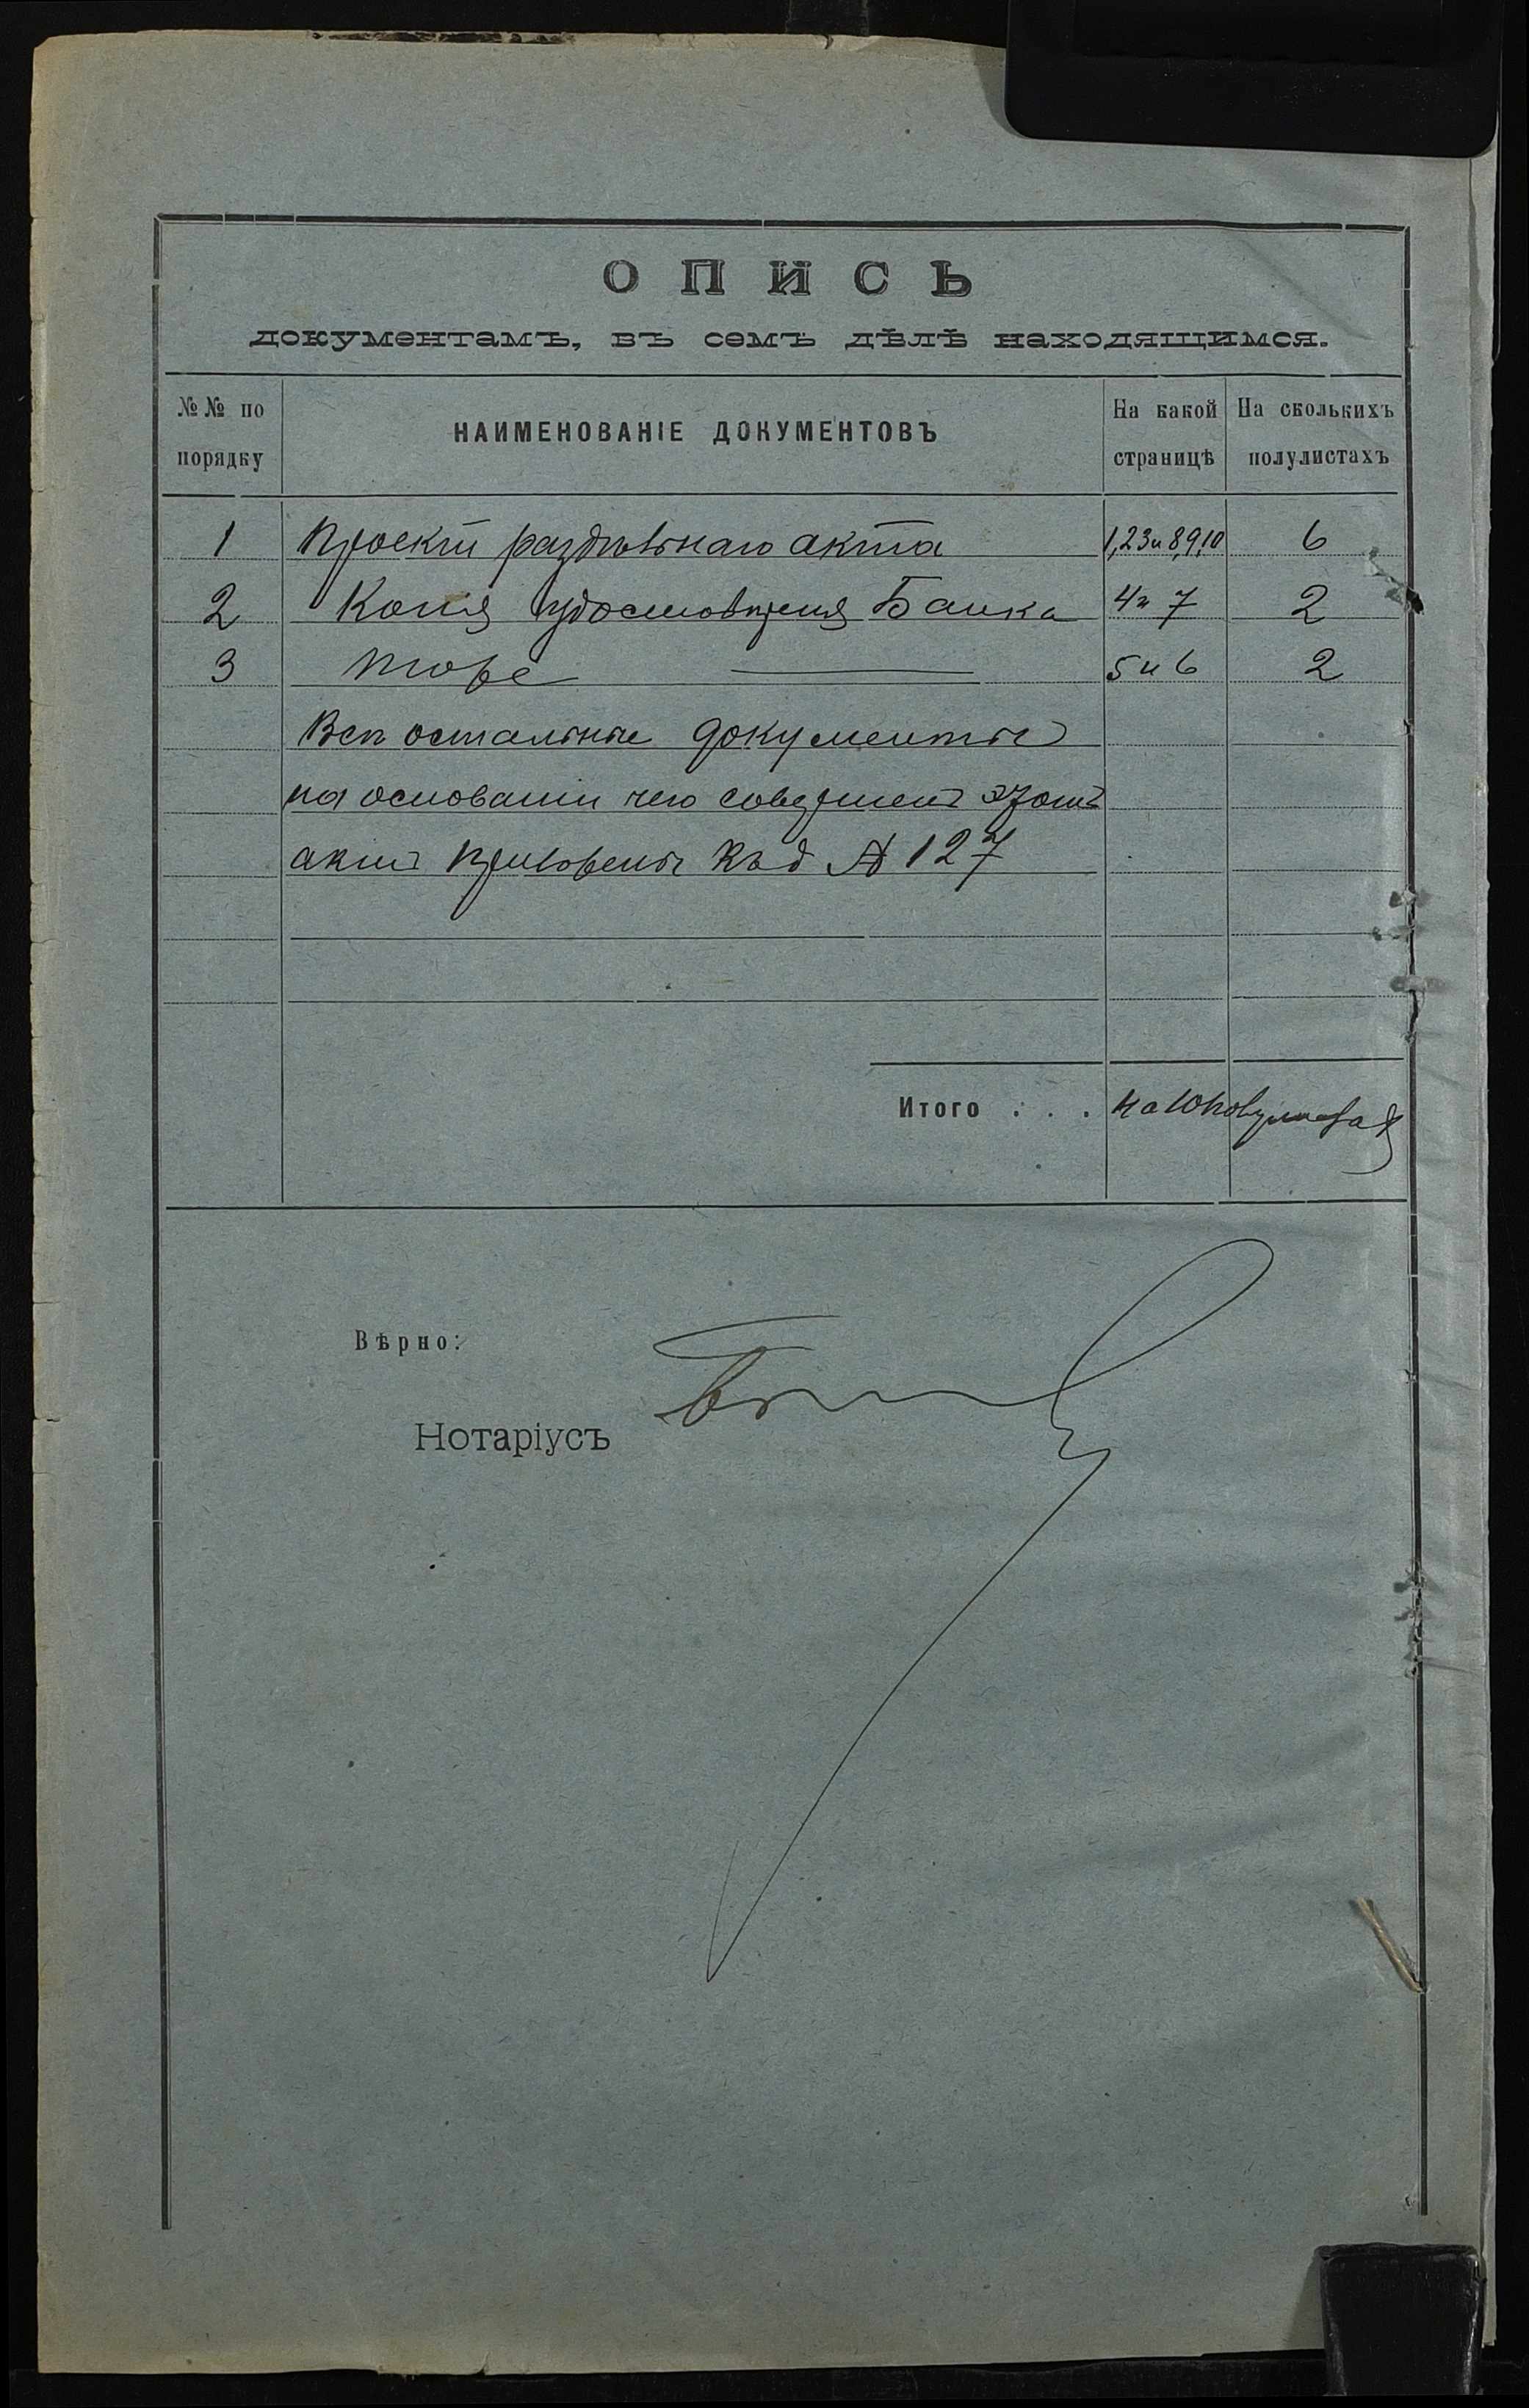 ОПИСЬ
документамъ, въ семъ дѣлѣ находящимся.
№№ по порядку НАИМЕНОВАНІЕ ДОКУМЕНТОВЪ На какой страницѣ На сколькихъ полулистахъ
1 Проектъ раздѣльнаго акта 1,2,3 и 8,9,10 6
2 Копія удостовѣренія Банка 4 и 7 2
3 тоже — 5 и 6 2
Всѣ остальные документы
на основаніи чего совершенъ этотъ
актъ приложены къ д № 127
Итого . . . на 10 полулистахъ
Вѣрно:
Нотаріусъ